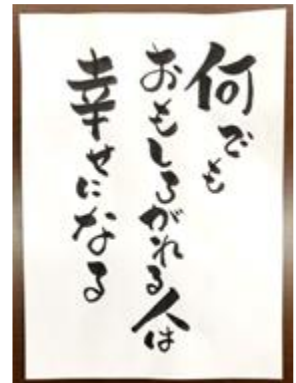 何でも
おもしろがれる人は
幸せになる